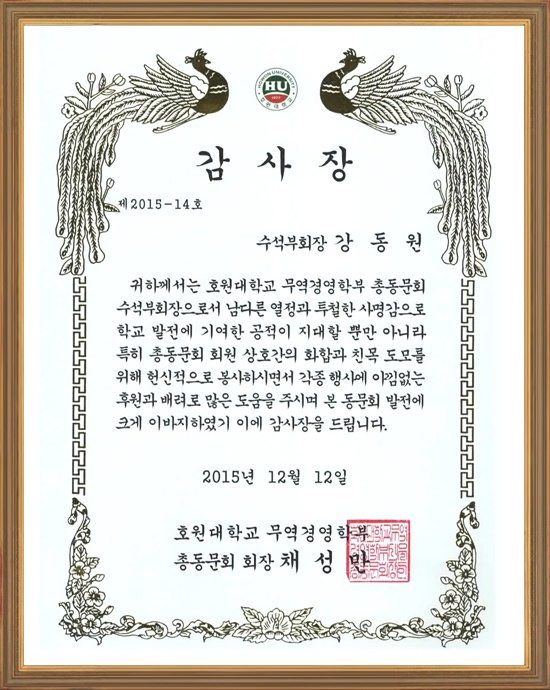 HOWON UNIVERSITY
HU
호원대학교
감사장
제2015-14호
수석부회장 강동원
귀하께서는 호원대학교 무역경영학부 총동문회
수석부회장으로서 남다른 열정과 투철한 사명감으로
학교 발전에 기여한 공적이 지대할 뿐만 아니라
특히 총동문회 회원 상호간의 화합과 친목 도모를
위해 헌신적으로 봉사하시면서 각종 행사에 아낌없는
후원과 배려로 많은 도움을 주시며 본 동문회 발전에
크게 이바지하였기 이에 감사장을 드립니다.
2015년 12월 12일
호원대학교 무역경영학부
총동문회 회장 채성만